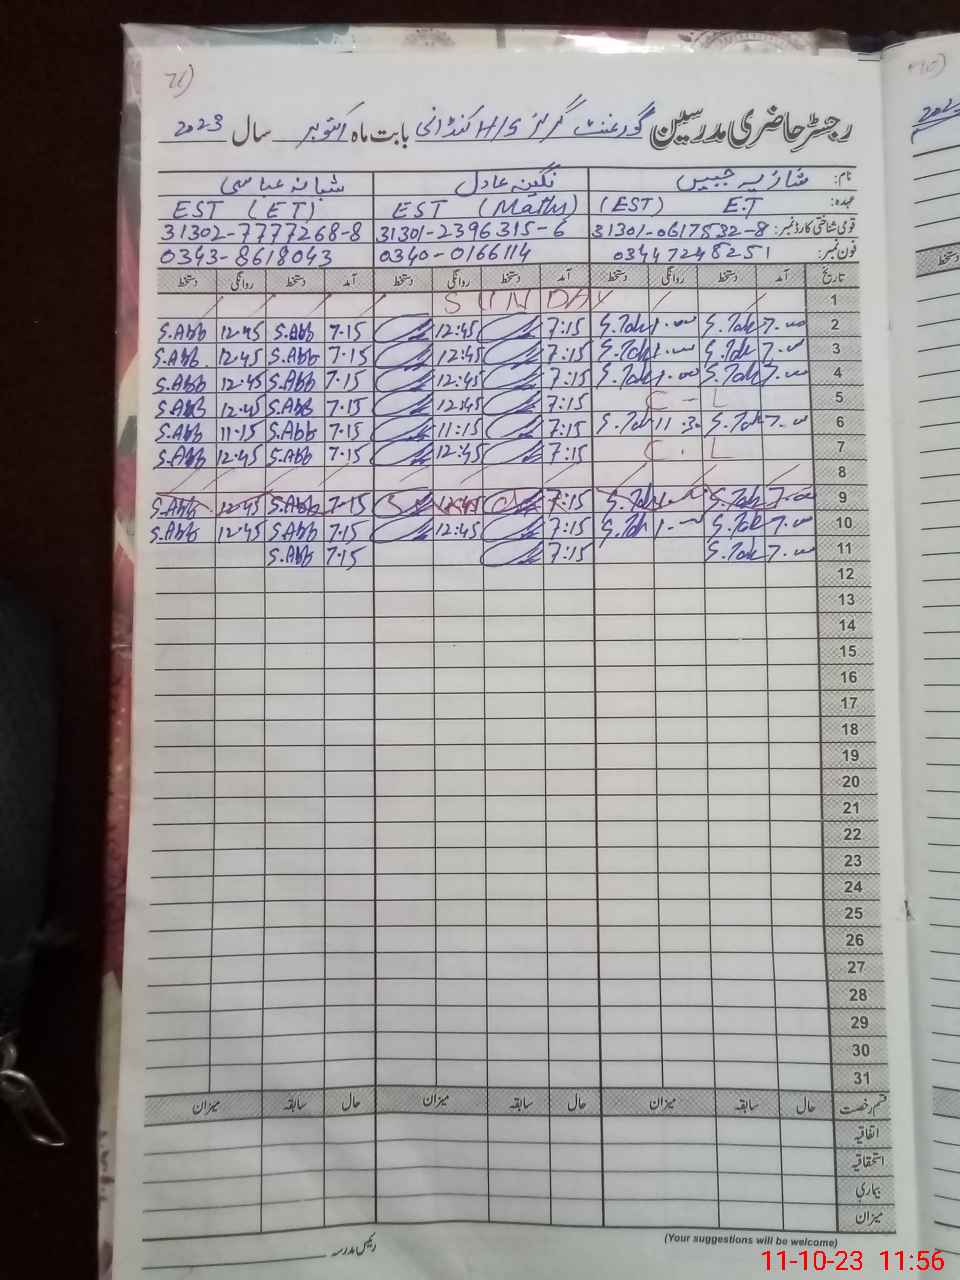 رجسٹر حاضری مدرسین گورنمنٹ گرلز H/S کنڈانی بابت ماہ اکتوبر سال 2023
نام: شازیہ جبیں نگینہ عادل شبانہ عباسی
عہدہ: E.T (EST) EST (Math) EST (ET)
قومی شناختی کارڈ نمبر: 31301-0617532-8 31301-2396315-6 31302-7777268-8
فون نمبر: 03447248251 0340-0166114 0343-8618043
تاریخ آمد دستخط روانگی دستخط آمد دستخط روانگی دستخط آمد دستخط روانگی دستخط
1 SUNDAY
2 7:15 12:45 7.15 S.Abb 12.45 S.Abb
3 7:15 12:45 7.15 S.Abb 12.45 S.Abb
4 7:15 12:45 7.15 S.Abb 12.45 S.Abb
5 C-L 7:15 12:45 7.15 S.Abb 12.45 S.Abb
6 11.30 7:15 11:15 7.15 S.Abb 11.15 S.Abb
7 C.L 7:15 12:45 7.15 S.Abb 12.45 S.Abb
8
9 7:15 12:45 7.15 S.Abb 12.45 S.Abb
10 7:15 12:45 7.15 S.Abb 12.45 S.Abb
11 7:15 7.15 S.Abb
12
13
14
15
16
17
18
19
20
21
22
23
24
25
26
27
28
29
30
31
قسم رخصت حال سابقہ میزان حال سابقہ میزان حال سابقہ میزان
اتفاقیہ
استحقاقیہ
بیماری
میزان
(Your suggestions will be welcome)
رئیس مدرسہ
11-10-23 11:56